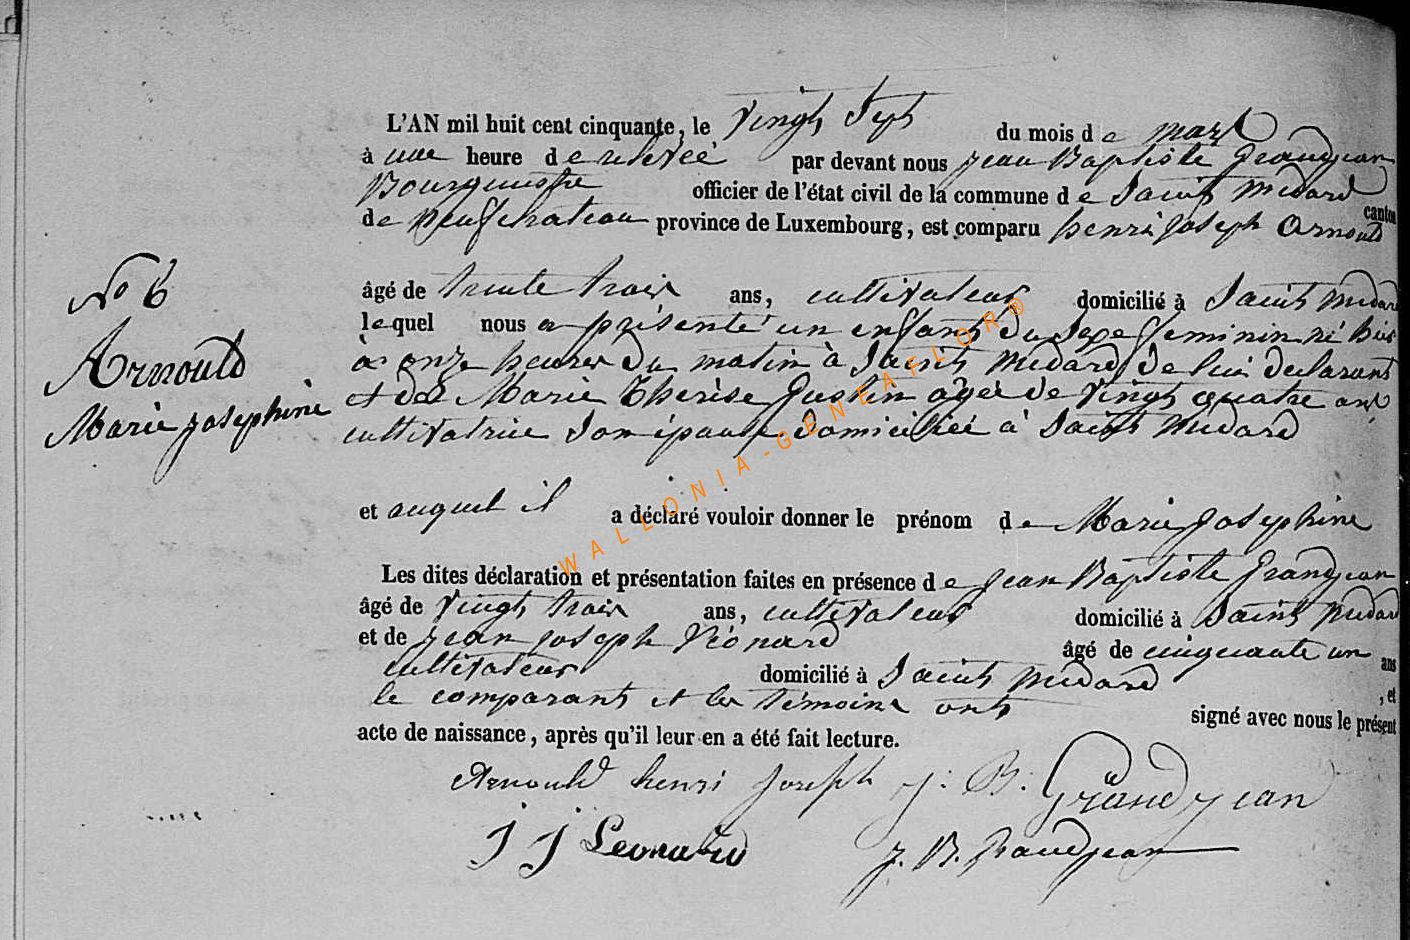 L'AN mil huit cent cinquante, le vingt sept du mois de mars
à une heure de relevée par devant nous Jean Baptiste Grandjean
Bourguestre officier de l'état civil de la commune de Saint Medard canton
de Neufchateau province de Luxembourg, est comparu henri Joseph Arnould
N° 6
Arnould
Marie Josephine
âgé de trente trois ans, cultivateur domicilié à Saint Medard
lequel nous a présenté un enfant du sexe feminin né hier
à onze heures du matin à Saint Medard de lui declarant
et de Marie Therèse Gustin agée de vingt quatre ans
cultivatrice son épouse domiciliée à Saint Medard
et auquel il a déclaré vouloir donner le prénom de Marie Josephine
Les dites déclaration et présentation faites en présence de Jean Baptiste Grandjean
âgé de vingt trois ans, cultivateur domicilié à Saint Medard
et de Jean Joseph Léonard âgé de cinquante un ans
cultivateur domicilié à Saint Medard , et
le comparant et les témoins ont signé avec nous le présent
acte de naissance, après qu'il leur en a été fait lecture.
Arnould henri Joseph J. B. Grandjean
J J Leonard J. B. Grandjean
WALLONIA-GENEAFLOR®